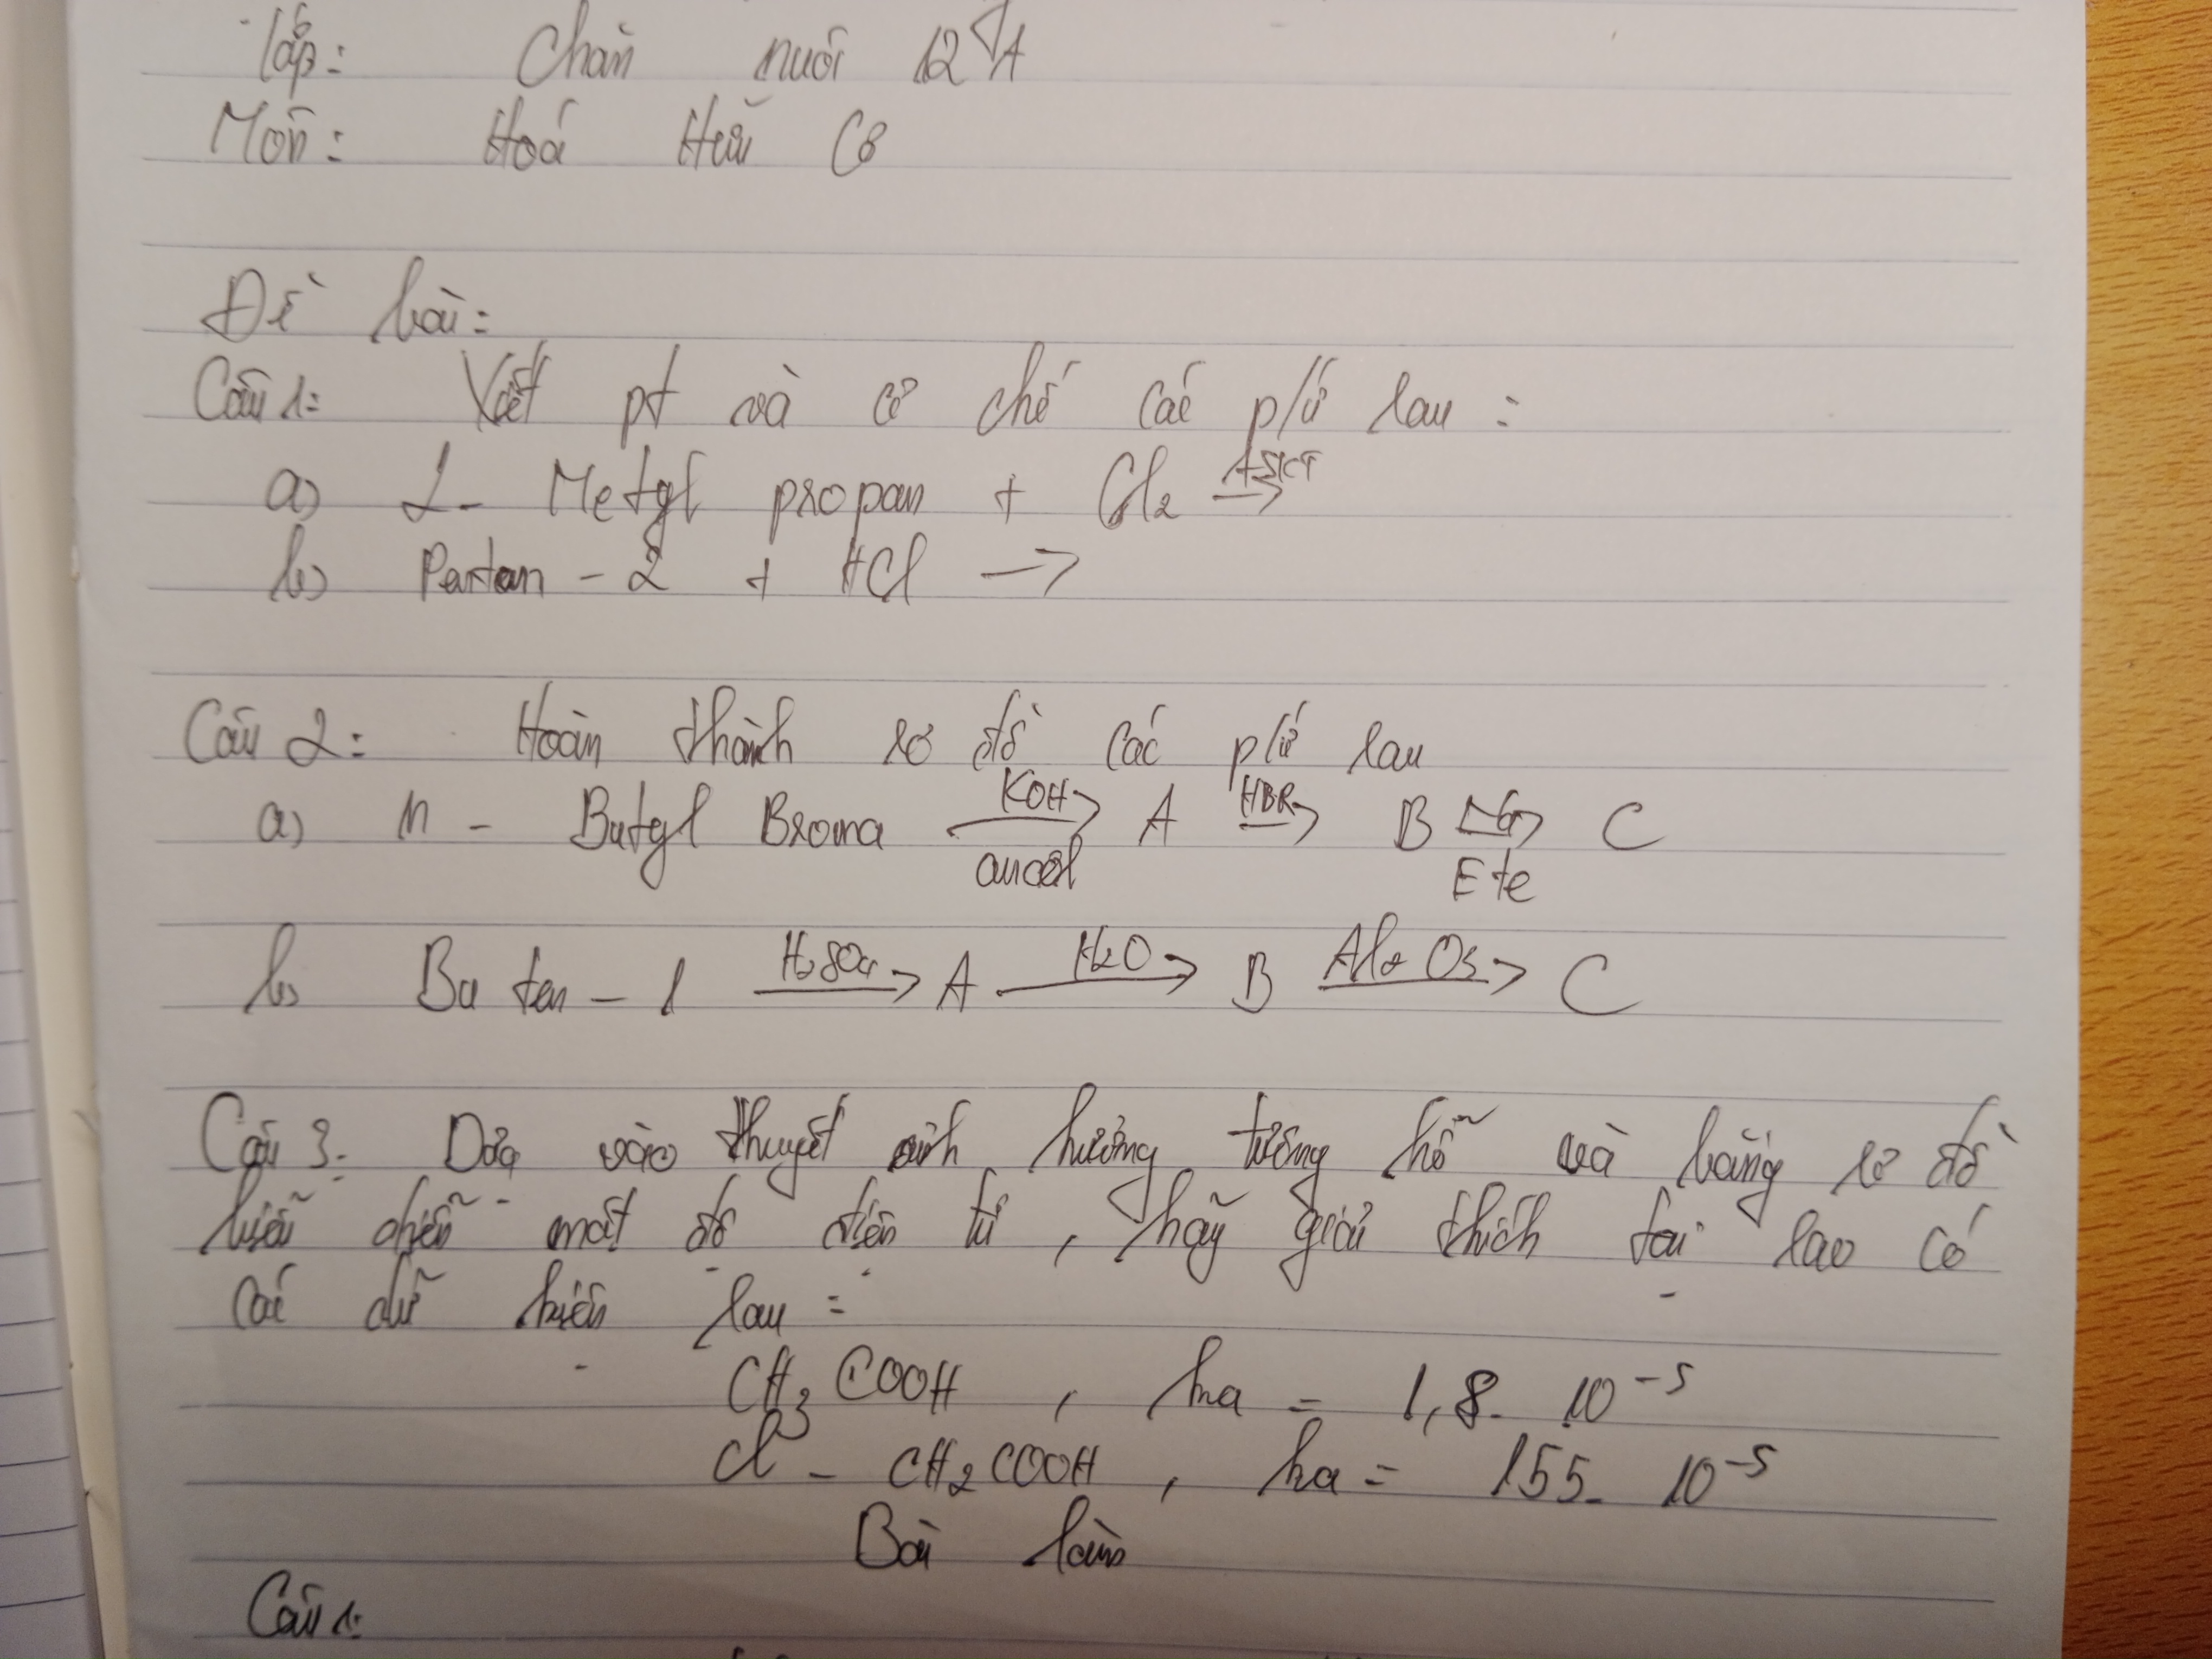 Lớp: Chăn nuôi 12A
Môn: Hoá Hữu Cơ
Đề bài:
Câu 1: Viết pt và cơ chế các p/ứ sau:
a) 2- Metyl propan + Cl₂ ASKT→
b) Penten - 2 + HCl →
Câu 2: Hoàn thành sơ đồ các p/ứ sau
a) n - Butyl Broma KOH→ancol A HBR→ B Na→Ete C
b) Bu ten - 1 H₂SO₄→ A H₂O→ B Al₂O₃→ C
Câu 3: Dựa vào thuyết ảnh hưởng tương hỗ và bằng sơ đồ
biểu diễn mật độ điện tử, hãy giải thích tại sao có
các dữ kiện sau:
CH₃COOH, ka = 1,8. 10⁻⁵
Cl - CH₂COOH, ka = 155. 10⁻⁵
Bài làm
Câu 1: